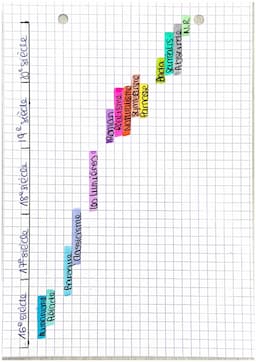 16e siècle
17e siècle
18e siècle
19e siècle
20e siècle
Humanisme
Pléiade
Baroque
Classicisme
Les Lumières
Roman
Réalisme
Naturalisme
Symbolisme
Parnasse
Dada
Absurde
N.R